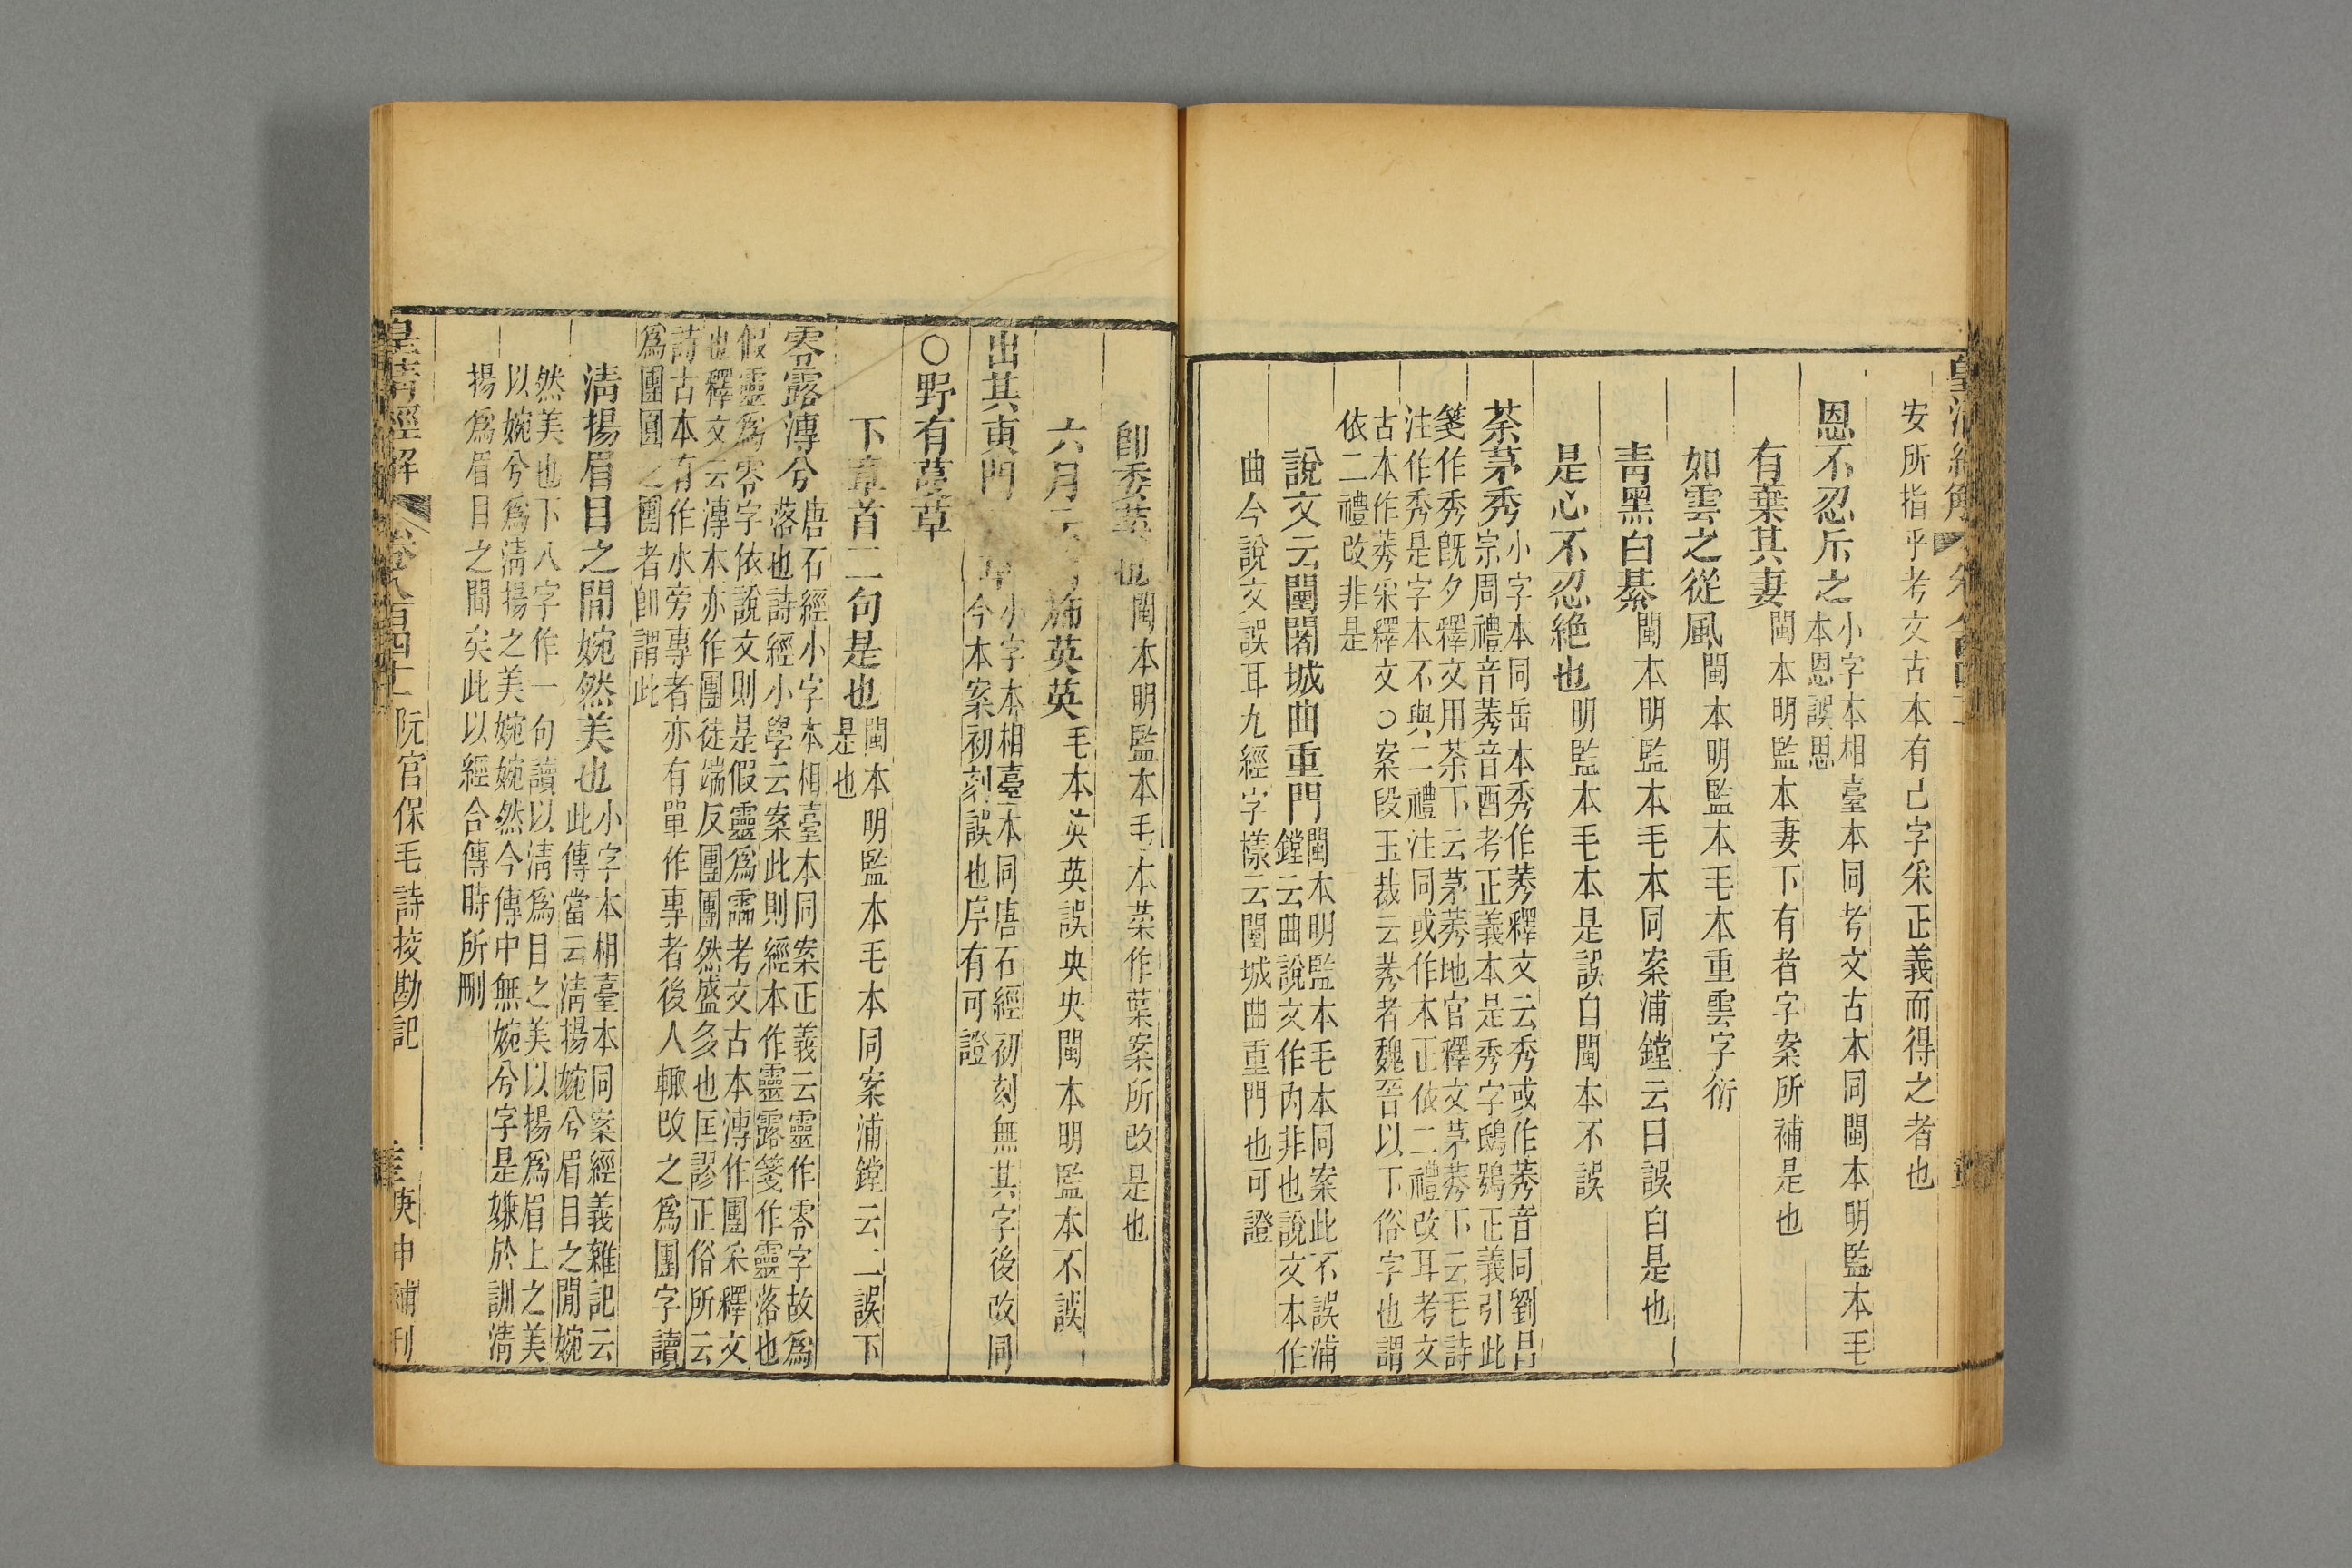 安所指乎考文古本有己字采正義而得之者也
恩不忍斥之小字本相臺本同考文古本同閩本明監本毛
本恩誤思
有棄其妻閩本明監本妻下有者字案所補是也
如雲之從風閩本明監本毛本重雲字衍
青黑白綦閩本明監本毛本同案浦鏜云曰誤白是也
是心不忍絶也明監本毛本是誤白閩本不誤
荼茅秀小字本同岳本秀作莠釋文云秀或作莠音同劉昌
宗周禮音莠音酉考正義本是秀字鴟鴞正義引此
箋作秀旣夕釋文用荼下云茅莠地官釋文茅莠下云毛詩
注作秀是字本不與二禮注同或作本正依二禮改耳考文
古本作莠采釋文○案段玉裁云莠者魏晉以下俗字也謂
依二禮改非是
說文云闉闍城曲重門閩本明監本毛本同案此不誤浦
鏜云曲說文作內非也說文本作
曲今說文誤耳九經字樣云闉城曲重門也可證
卽委葉也閩本明監本毛本菜作葉案所改是也
六月云 旆英英毛本英英誤央央閩本明監本不誤
出其東門 章小字本相臺本同唐石經初刻無其字後改同
今本案初刻誤也序有可證
○野有蔓草
下章首二句是也閩本明監本毛本同案浦鏜云二誤下
是也
零露漙兮唐石經小字本相臺本同案正義云靈作零字故爲
落也詩經小學云案此則經本作靈露箋作靈落也
假靈爲零字依說文則是假靈爲霝考文古本漙作團采釋文
也釋文云漙本亦作團徒端反團團然盛多也匡謬正俗所云
詩古本有作水旁專者亦有單作專者後人輒改之爲團字讀
爲團圓之團者卽謂此
清揚眉目之間婉然美也小字本相臺本同案經義雜記云
此傳當云清揚婉兮眉目之閒婉
然美也下八字作一句讀以清爲目之美以揚爲眉上之美
以婉兮爲清揚之美婉婉然今傳中無婉兮字是嫌於訓清
揚爲眉目之間矣此以經合傳時所刪
皇清經解 卷八百四十一 阮宮保毛詩挍勘記 庚申補刊